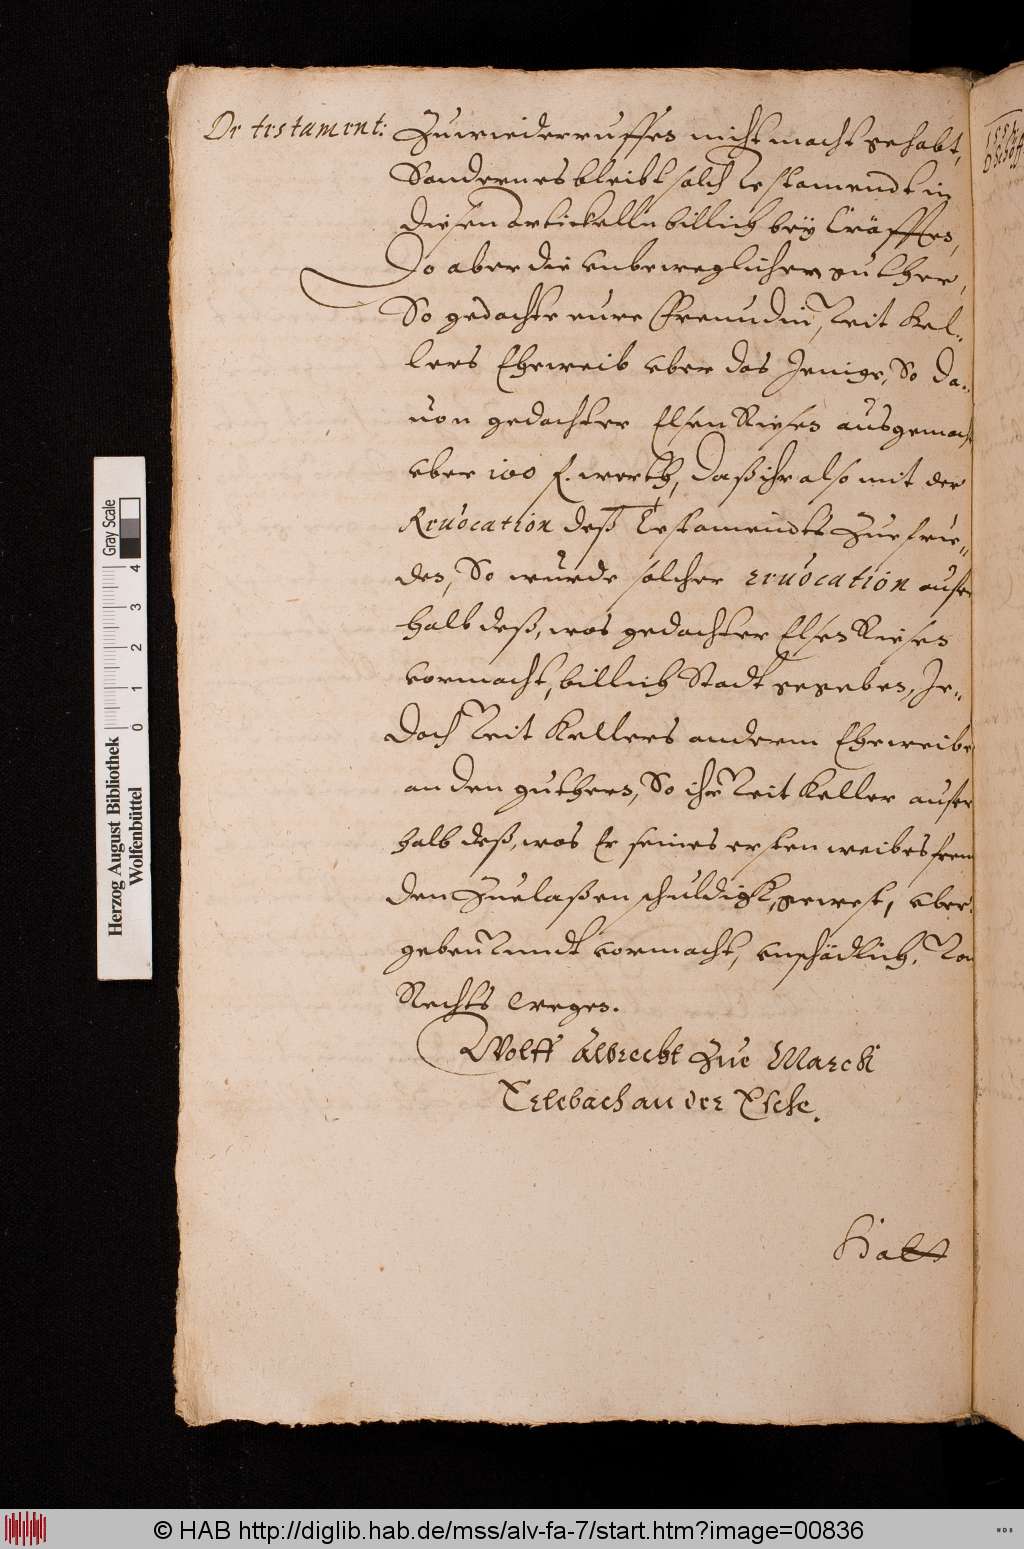 De testament:
Zuwiederruffen nicht macht gehabt,
Sondern es bleibt solch Testamendt in
diesen Artickelln billich bey Cräfften,
Do aber die unbeweglichen guther,
So gedachte eure Freundin, Veit Kel-
lers Eheweib uber das Jenige, So da-
uon gedachter Elsen Riesen ausgemacht
uber 100 f. werth, daß ihr also mit der
Reuocation deß Testamendts Zuefrie-
den, So wurde solcher reuocation auser
halb deß, was gedachter Elsen Riesen
vormacht, billich Stadt gegeben, Je-
doch Veit Kellers anderm Eheweibe
an den guthern, So ihr Veit Keller auser
halb deß, was Er seines ersten weibes freun
den Zuelaßen schuldigk, gewest, uber-
geben Unndt vormacht, unschädlich, Von
Rechts Wegen.
Wolff Albrecht Zue Marck
Erlebach an der Esche.
Halt
Gray Scale
0 1 2 3 4
Herzog August Bibliothek
Wolfenbüttel
© HAB http://diglib.hab.de/mss/alv-fa-7/start.htm?image=00836